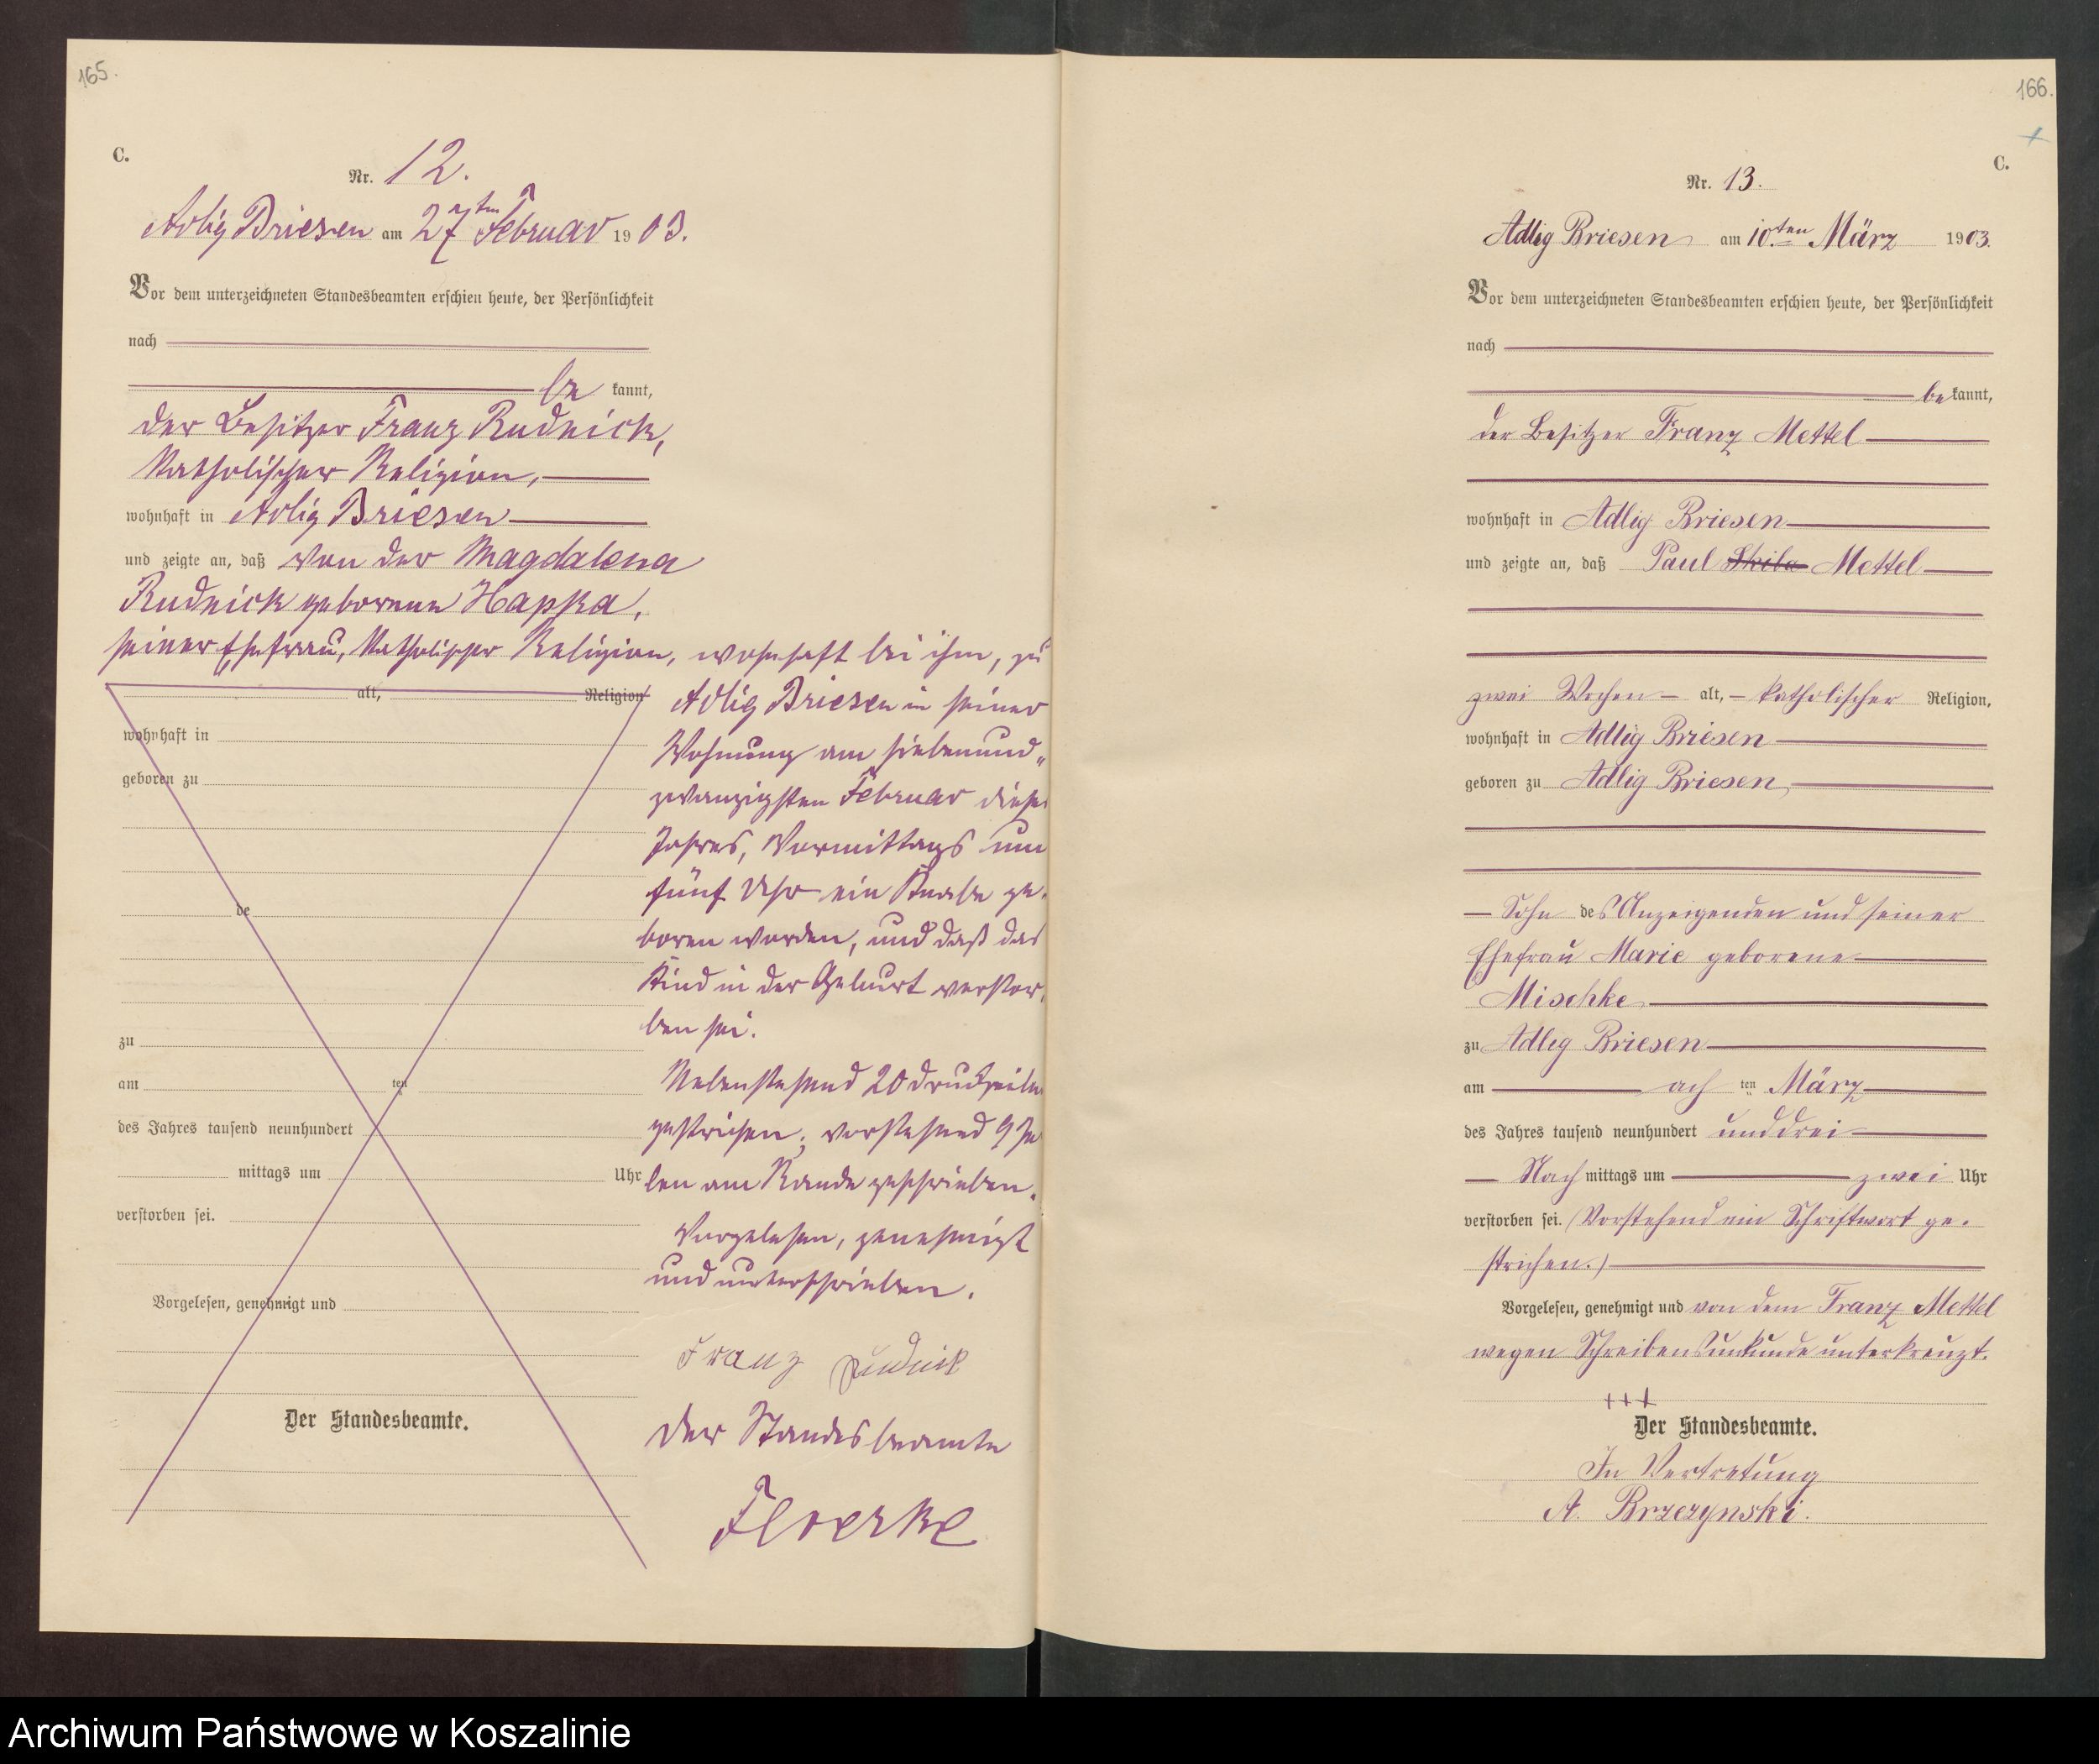 165.
C.
Nr. 12.
Adlig Briesen am 27ten Februar 1903.
Vor dem unterzeichneten Standesbeamten erschien heute, der Persönlichkeit
nach
be kannt,
der Besitzer Franz Rudnick,
katholischer Religion,
wohnhaft in Adlig Briesen
und zeigte an, daß von der Magdalena
Rudnick geborenen Happka,
seiner Ehefrau, katholischer Religion, wohnhaft bei ihm, zu
alt, Religion
Adlig Briesen in seiner
wohnhaft in
Wohnung am siebenund„
geboren zu
zwanzigsten Februar dieses
Jahres, Vormittags um
fünf Uhr ein Knabe ge-
de
boren worden, und daß das
Kind in der Geburt verstor-
ben sei.
zu
am ten
Nebenstehend 20 Druckzeilen
des Jahres tausend neunhundert
gestrichen, vorstehend 9 Zei
mittags um Uhr
len am Rande geschrieben.
verstorben sei.
Vorgelesen, genehmigt
und unterschrieben.
Vorgelesen, genehmigt und
Franz Rudnik
Der Standesbeamte.
Der Standesbeamte
Floerke
166.
C.
Nr. 13.
Adlig Briesen am 10.ten März 1903.
Vor dem unterzeichneten Standesbeamten erschien heute, der Persönlichkeit
nach
be kannt,
der Besitzer Franz Mettel
wohnhaft in Adlig Briesen
und zeigte an, daß Paul Mettel
zwei Wochen alt, katholischer Religion,
wohnhaft in Adlig Briesen
geboren zu Adlig Briesen,
Sohn des Anzeigenden und seiner
Ehefrau Marie geborene
Mischke
zu Adlig Briesen
am ach ten März
des Jahres tausend neunhundert und drei
Nach mittags um zwei Uhr
verstorben sei. (Vorstehend ein Schriftwort ge-
strichen.)
Vorgelesen, genehmigt und von dem Franz Mettel
wegen Schreibensunkunde unterkreuzt.
+++
Der Standesbeamte.
In Vertretung
A. Brzezynski.
Archiwum Państwowe w Koszalinie